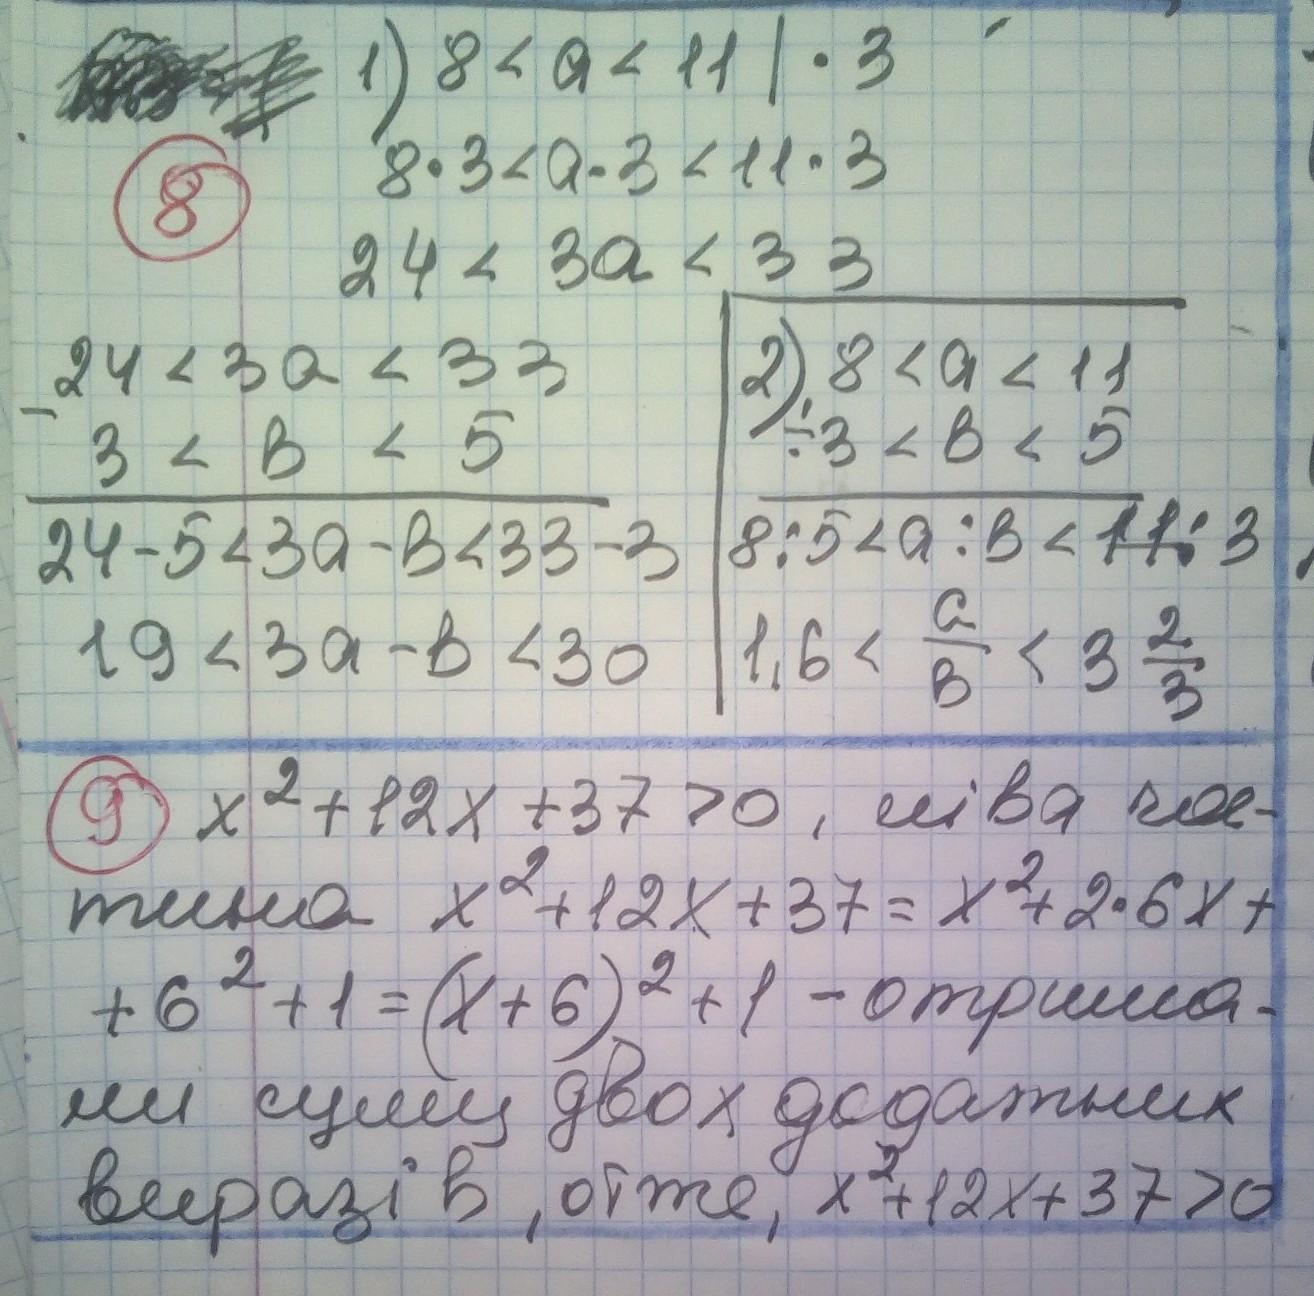 1) 8 < a < 11 | · 3
8
8·3 < a·3 < 11·3
24 < 3a < 33
24 < 3a < 33
− 3 < в < 5
24-5<3a-в<33-3
19 < 3a-в < 30
2) 8 < a < 11
÷ 3 < в < 5
8:5<a:в<11:3
1,6 < a/в < 3 2/3
9 x²+12x+37>0, ліва час-
тина x²+12x+37 = x²+2·6x+
+6²+1=(x+6)²+1 - отрима-
ли суму двох додатних
виразів, отже, x²+12x+37>0